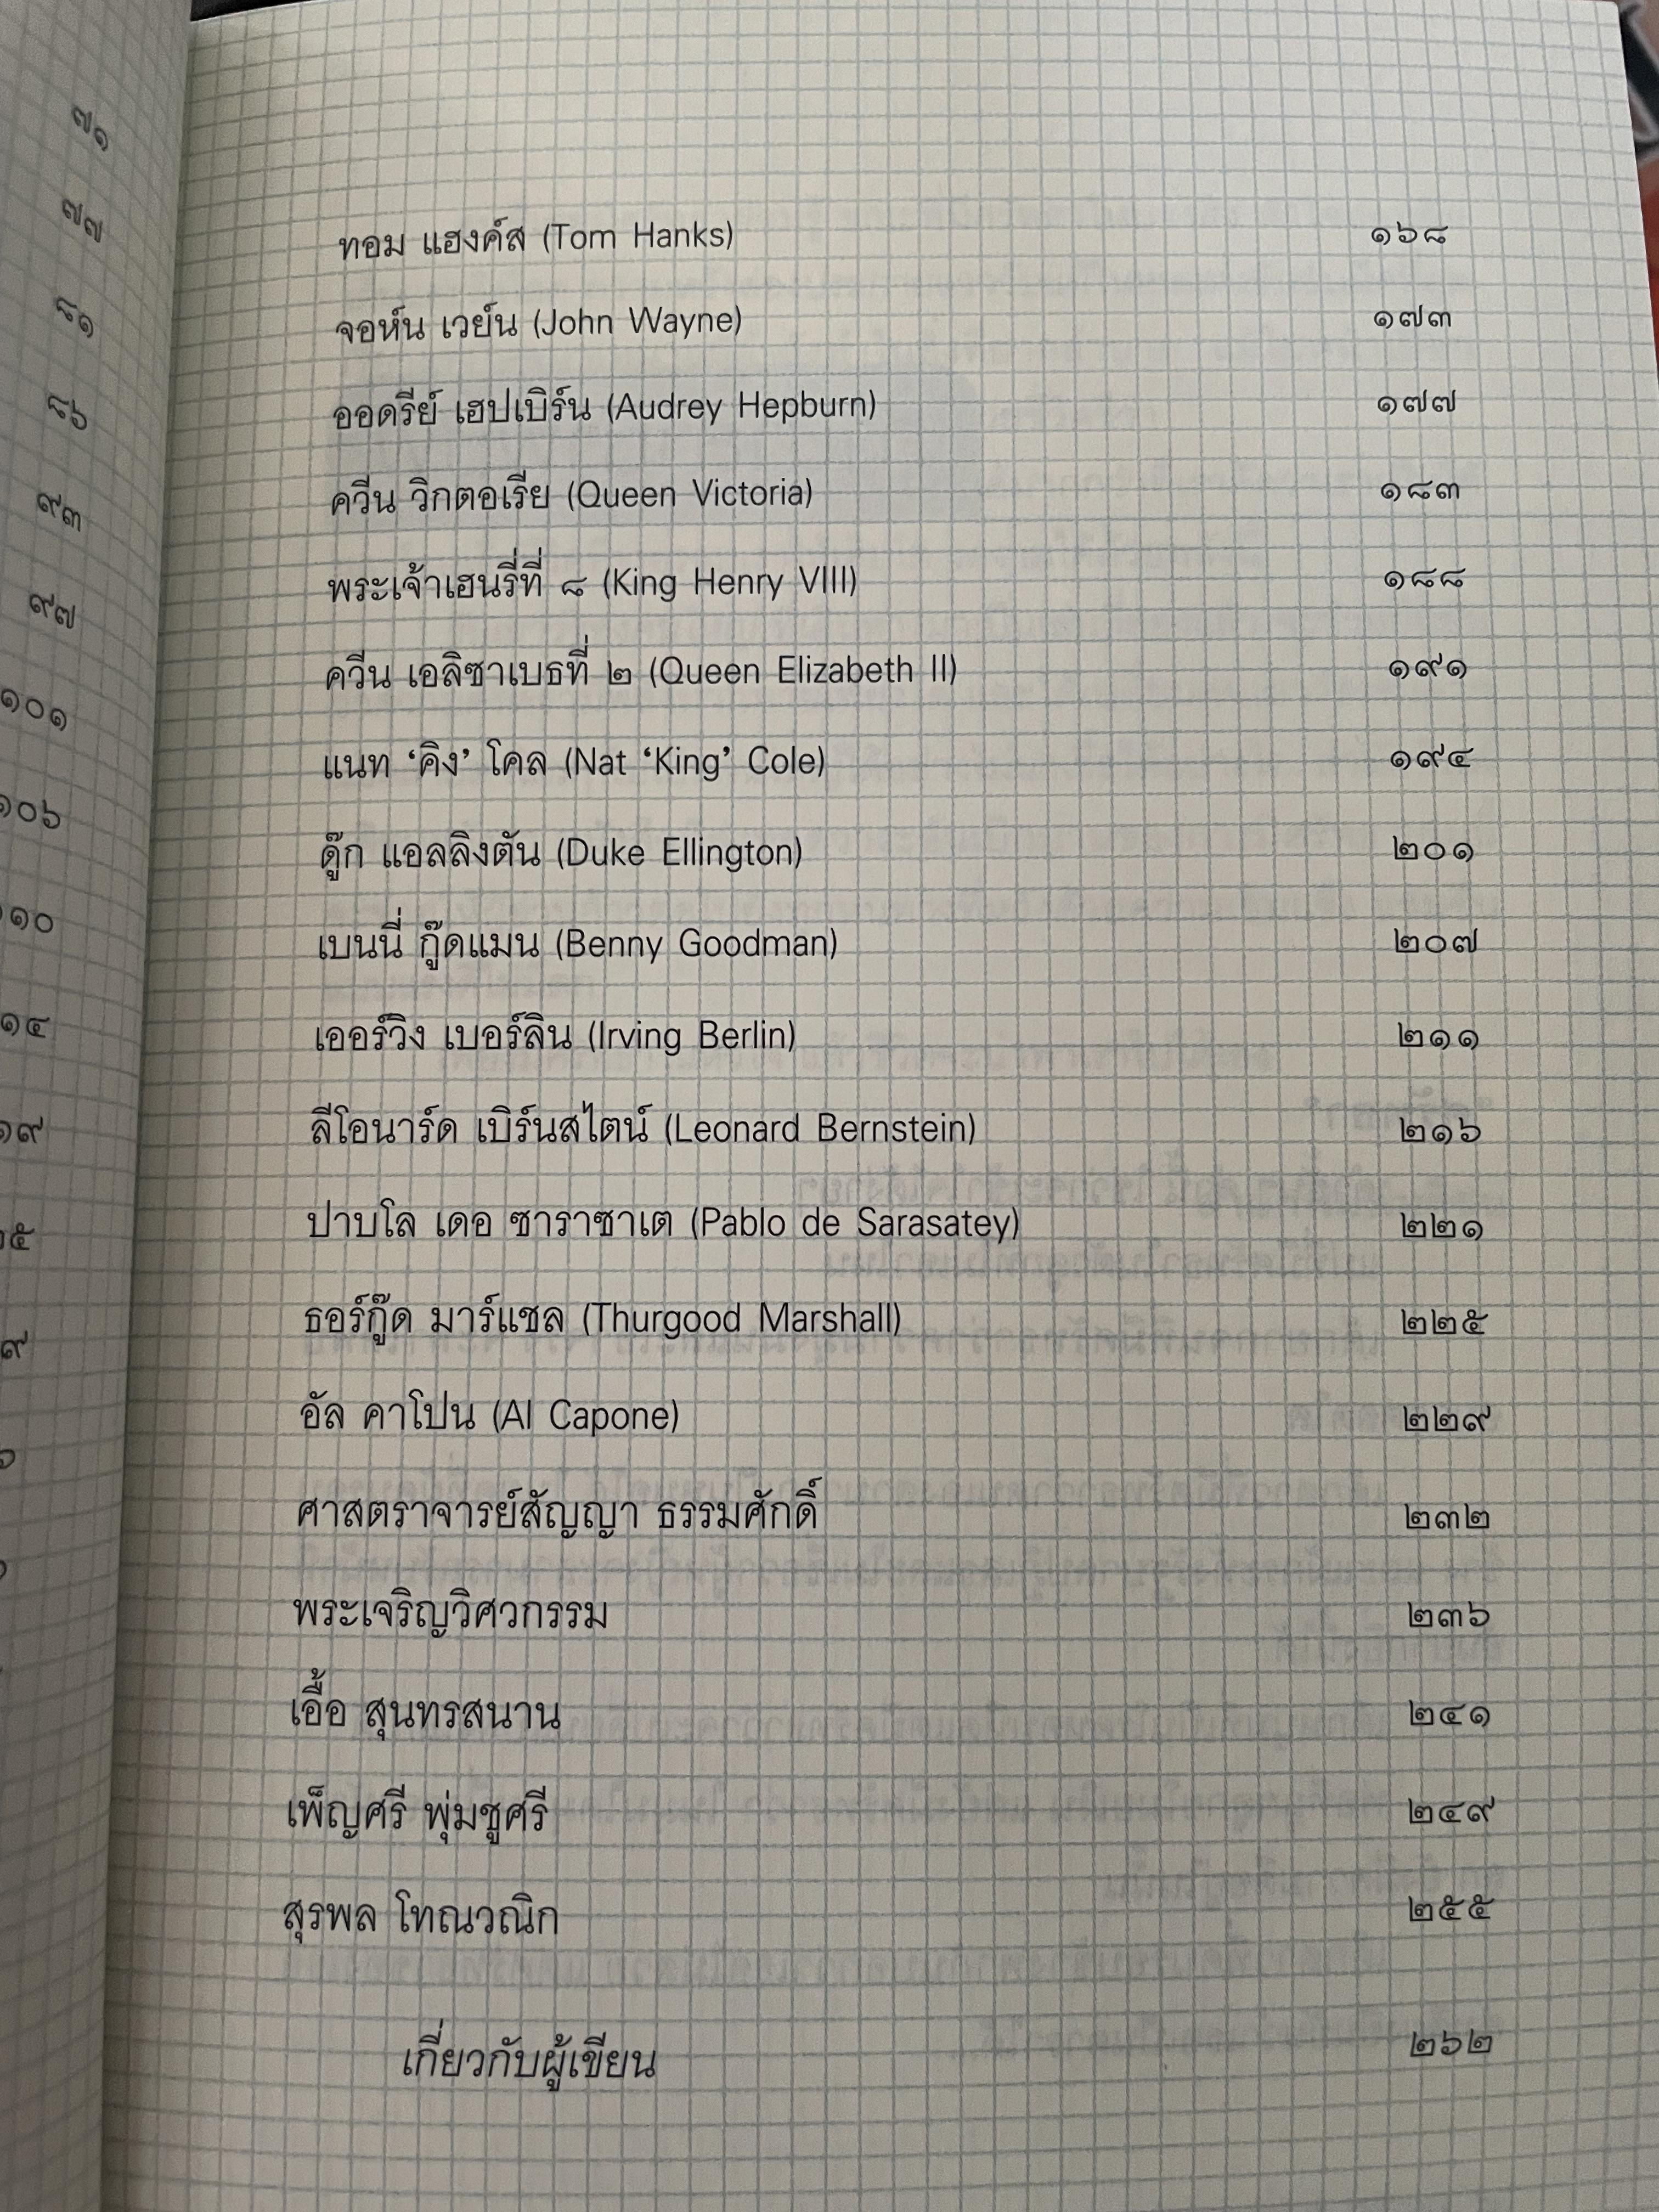 ๗๑
๗๗
๘๑
๘๖
๙๓
๙๗
๑๐๑
๑๐๖
๑๑๐
ทอม แฮงค์ส (Tom Hanks) ๑๖๘
จอห์น เวย์น (John Wayne) ๑๗๓
ออดรีย์ เฮปเบิร์น (Audrey Hepburn) ๑๗๗
ควีน วิกตอเรีย (Queen Victoria) ๑๘๓
พระเจ้าเฮนรี่ที่ ๘ (King Henry VIII) ๑๘๘
ควีน เอลิซาเบธที่ ๒ (Queen Elizabeth II) ๑๙๑
แนท ‘คิง’ โคล (Nat ‘King’ Cole) ๑๙๔
ดู๊ก แอลลิงตัน (Duke Ellington) ๒๐๑
เบนนี่ กู๊ดแมน (Benny Goodman) ๒๐๗
เออร์วิง เบอร์ลิน (Irving Berlin) ๒๑๑
ลีโอนาร์ด เบิร์นสไตน์ (Leonard Bernstein) ๒๑๖
ปาบโล เดอ ซาราซาเต (Pablo de Sarasatey) ๒๒๑
ธอร์กู๊ด มาร์แชล (Thurgood Marshall) ๒๒๕
อัล คาโปน (Al Capone) ๒๒๙
ศาสตราจารย์สัญญา ธรรมศักดิ์ ๒๓๒
พระเจริญวิศวกรรม ๒๓๖
เอื้อ สุนทรสนาน ๒๔๑
เพ็ญศรี พุ่มชูศรี ๒๔๙
สุรพล โทณวณิก ๒๕๕
เกี่ยวกับผู้เขียน ๒๖๒